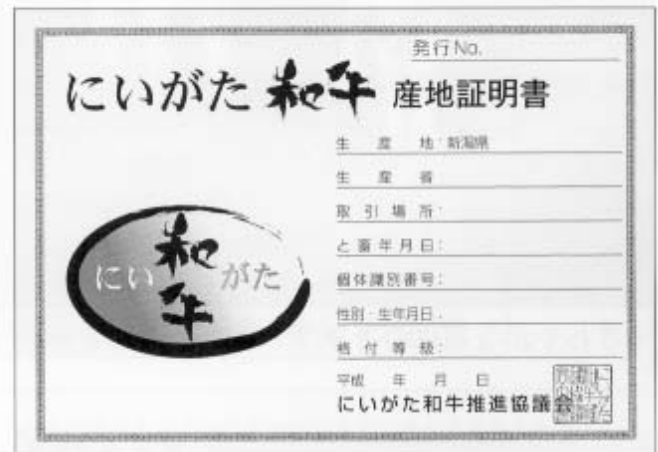 発行No.
にいがた和牛 産地証明書
生産地:新潟県
生産者
取引場所:
と畜年月日:
個体識別番号:
性別・生年月日:
格付等級:
平成 年 月 日
にいがた和牛推進協議会
にいがた
和牛